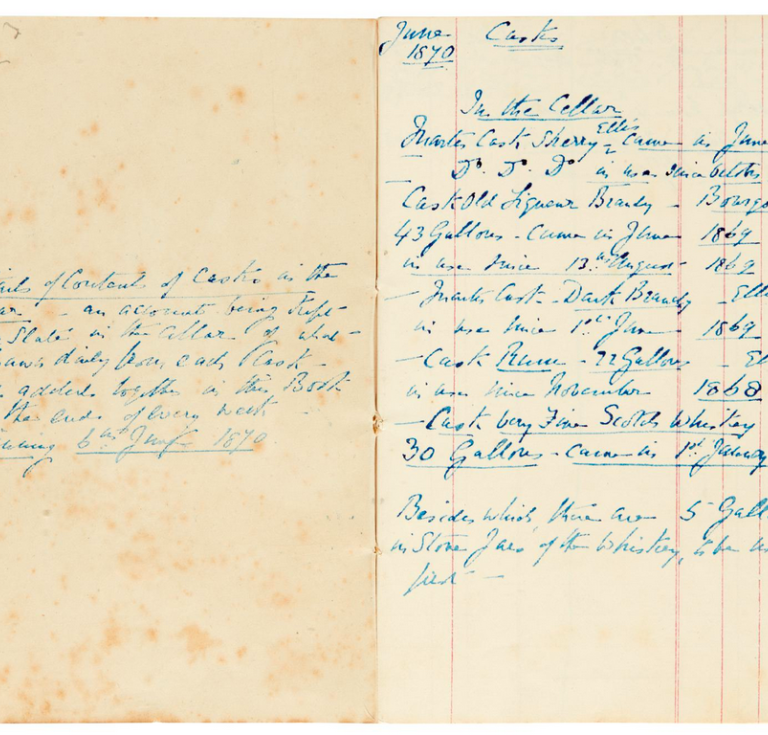 of Contents of Casks in the
— an account being kept
Slate in the Cellar of what
daily from each Cask —
added together in this Book
the ends of every week —
6th June 1870
June Casks
1870
In the Cellar
Ellis
Quarter Cask Sherry – came in June
— Do. Do. Do in use since
Cask Old Liqueur Brandy –
43 Gallons – Came in June 1869
in use since 13th August 1869
– Quarter Cask – Dark Brandy –
in use since 1st June – 1869
– Cask Rum – 22 Gallons –
in use since November 1868
– Cask very Fine Scotch Whiskey
30 Gallons – came in 1st January
Besides which, there are 5
in Stone Jars of the Whiskey, to be
first –